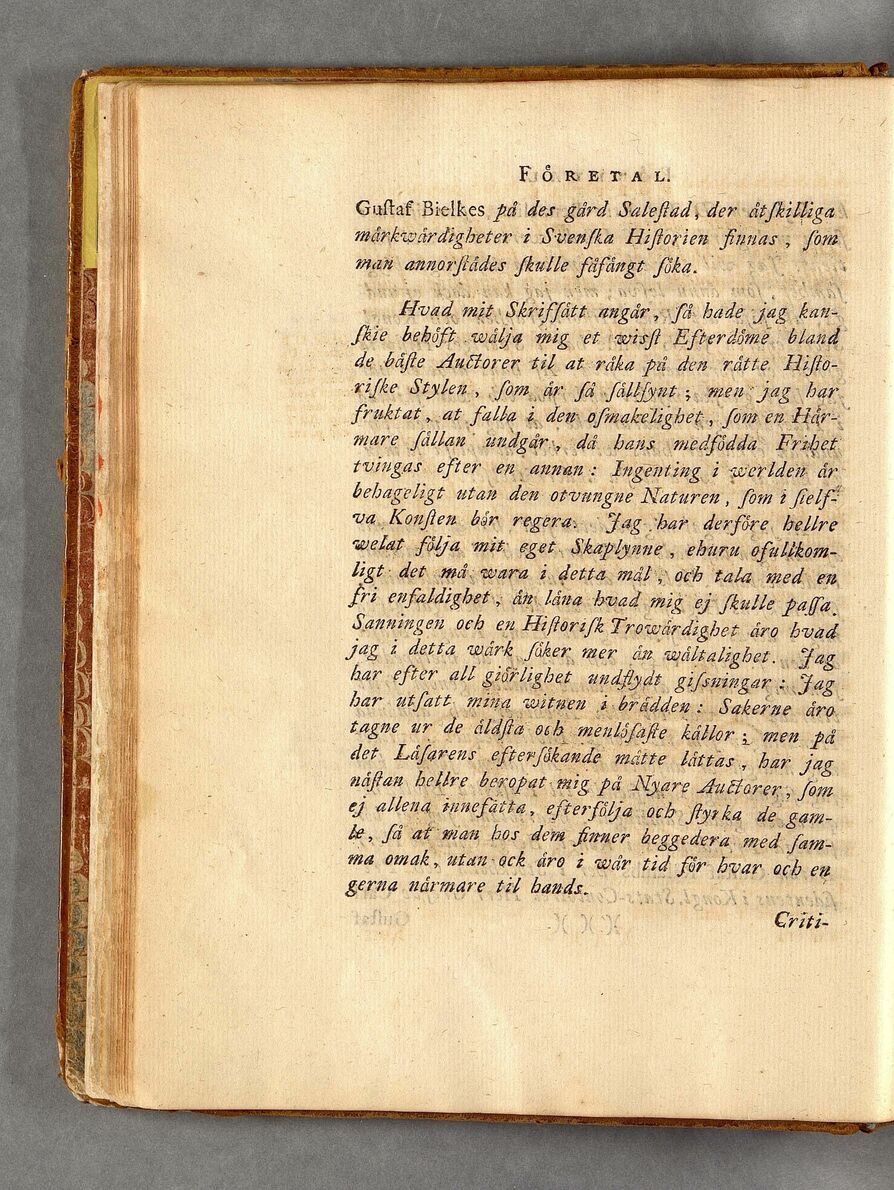 FÖRETAL.
Guſtaf Bielkes på des gård Saleſtad, der åtſkilliga
mårkwårdigheter i Svenſka Hiſtorien finnas, ſom
man annorſtådes ſkulle fåfångt ſöka.
Hvad mit Skriffått angår, ſå hade jag kan-
ſkie behöft wålja mig et wiſſt Efterdöme bland
de båſte Auctorer til at råka på den råtte Hiſto-
riſke Stylen, ſom år ſå ſållſynt; men jag har
fruktat, at falla i den oſmakelighet, ſom en Hår-
mare ſållan undgår, då hans medfödda Frihet
tvingas efter en annan: Ingenting i werlden år
behageligt utan den otvungne Naturen, ſom i ſielf-
va Konſten bör regera. Jag har derföre hellre
welat följa mit eget Skaplynne, ehuru ofullkom-
ligt det må wara i detta mål, och tala med en
fri enfaldighet, ån låna hvad mig ej ſkulle paſſa.
Sanningen och en Hiſtoriſk Trowårdighet åro hvad
jag i detta wårk ſöker mer ån wåltalighet. Jag
har efter all giörlighet undflydt giſsningar: Jag
har utſatt mina witnen i brådden: Sakerne åro
tagne ur de åldſta och menlöſaſte kållor; men på
det Låſarens efterſökande måtte låttas, har jag
nåſtan hellre beropat mig på Nyare Auctorer, ſom
ej allena innefåtta, efterfölja och ſtyrka de gam-
le, ſå at man hos dem finner beggedera med ſam-
ma omak, utan ock åro i wår tid för hvar och en
gerna nårmare til hands.
Criti-